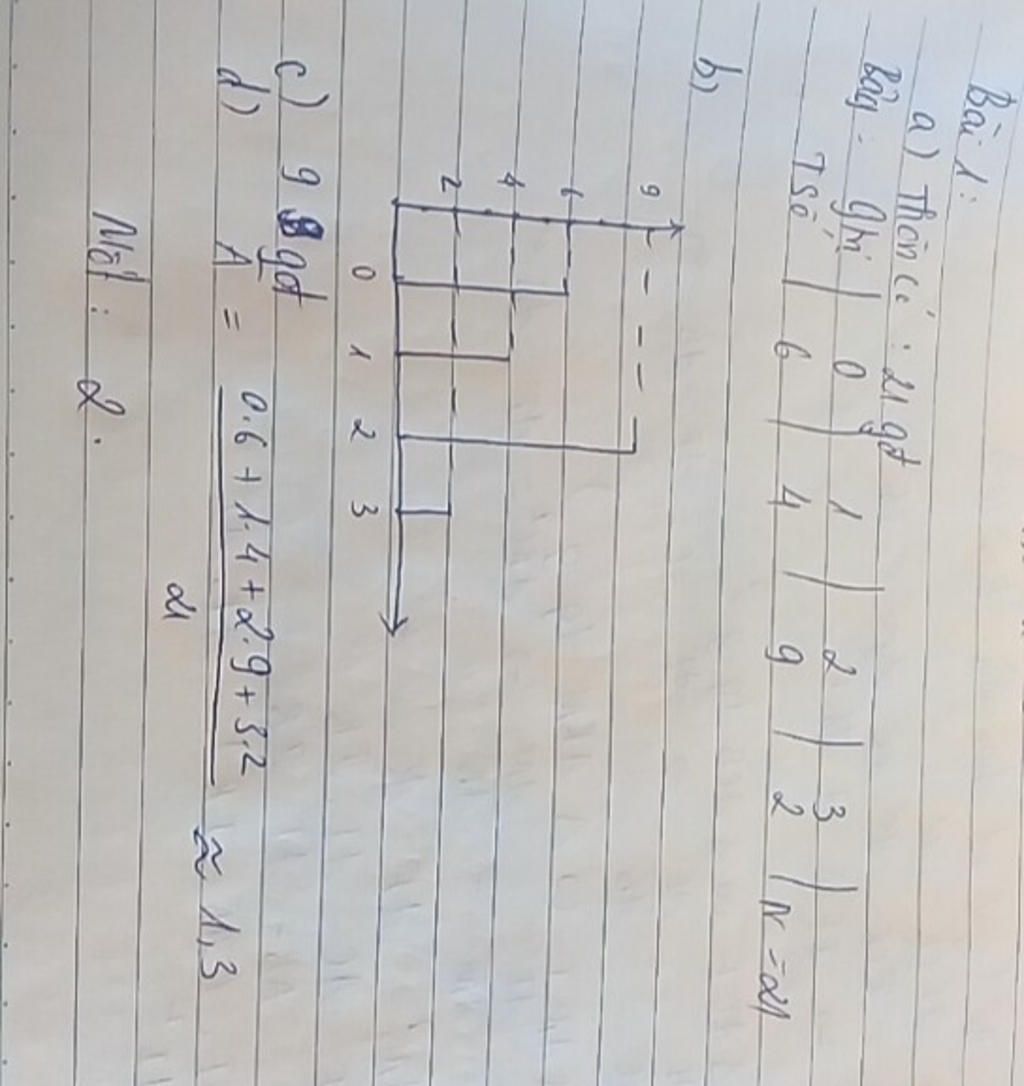 Bài 1:
a) Thôn có : 21 gđ
Bảng: Ghi | 0 | 1 | 2 | 3 |
T Số | 6 | 4 | 9 | 2 | N = 21
b)
9
6
4
2
0 1 2 3
c) 9 gđ
d) A = 0.6 + 1.4 + 2.9 + 3.2 ≈ 1,3
21
Mốt : 2.